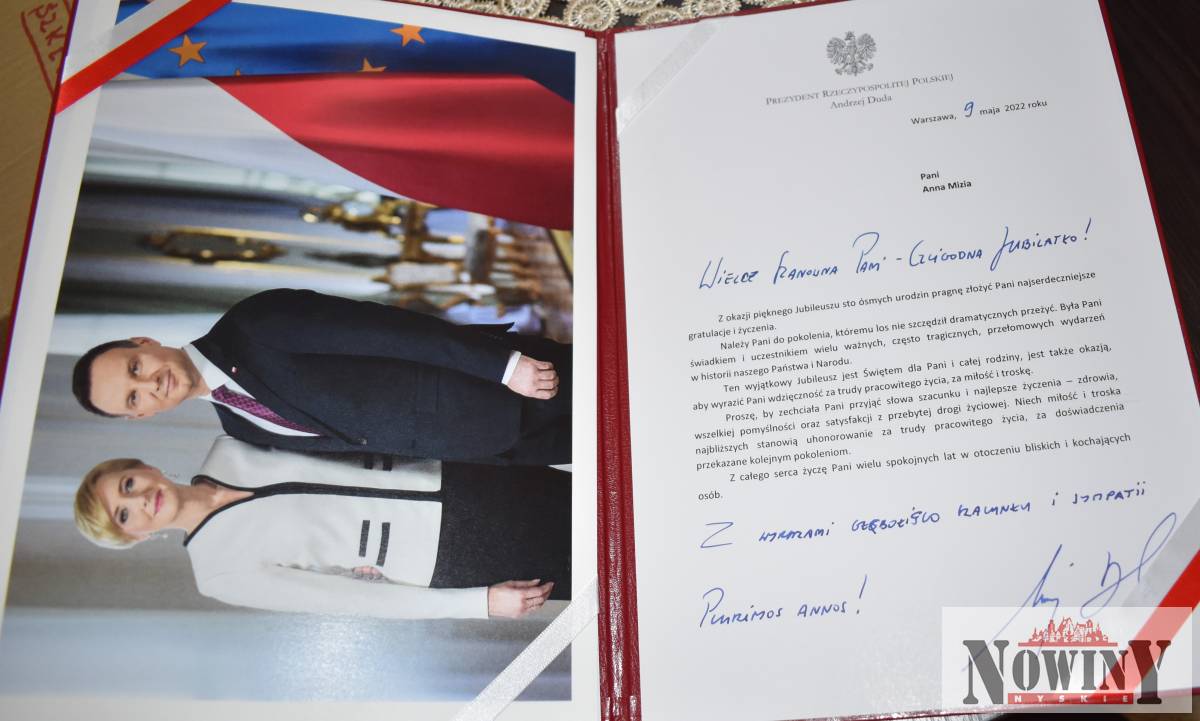 PREZYDENT RZECZYPOSPOLITEJ POLSKIEJ
Andrzej Duda
Warszawa, 9 maja 2022 roku
Pani
Anna Mizia
WIELCE SZANOWNA PANI - CZCIGODNA JUBILATKO!
Z okazji pięknego Jubileuszu sto ósmych urodzin pragnę złożyć Pani najserdeczniejsze
gratulacje i życzenia.
Należy Pani do pokolenia, któremu los nie szczędził dramatycznych przeżyć. Była Pani
świadkiem i uczestnikiem wielu ważnych, często tragicznych, przełomowych wydarzeń
w historii naszego Państwa i Narodu.
Ten wyjątkowy Jubileusz jest Świętem dla Pani i całej rodziny, jest także okazją,
aby wyrazić Pani wdzięczność za trudy pracowitego życia, za miłość i troskę.
Proszę, by zechciała Pani przyjąć słowa szacunku i najlepsze życzenia – zdrowia,
wszelkiej pomyślności oraz satysfakcji z przebytej drogi życiowej. Niech miłość i troska
najbliższych stanowią uhonorowanie za trudy pracowitego życia, za doświadczenia
przekazane kolejnym pokoleniom.
Z całego serca życzę Pani wielu spokojnych lat w otoczeniu bliskich i kochających
osób.
Z WYRAZAMI GŁĘBOKIEGO SZACUNKU I SYMPATII
PLURIMOS ANNOS!
NOWINY
NYSKIE